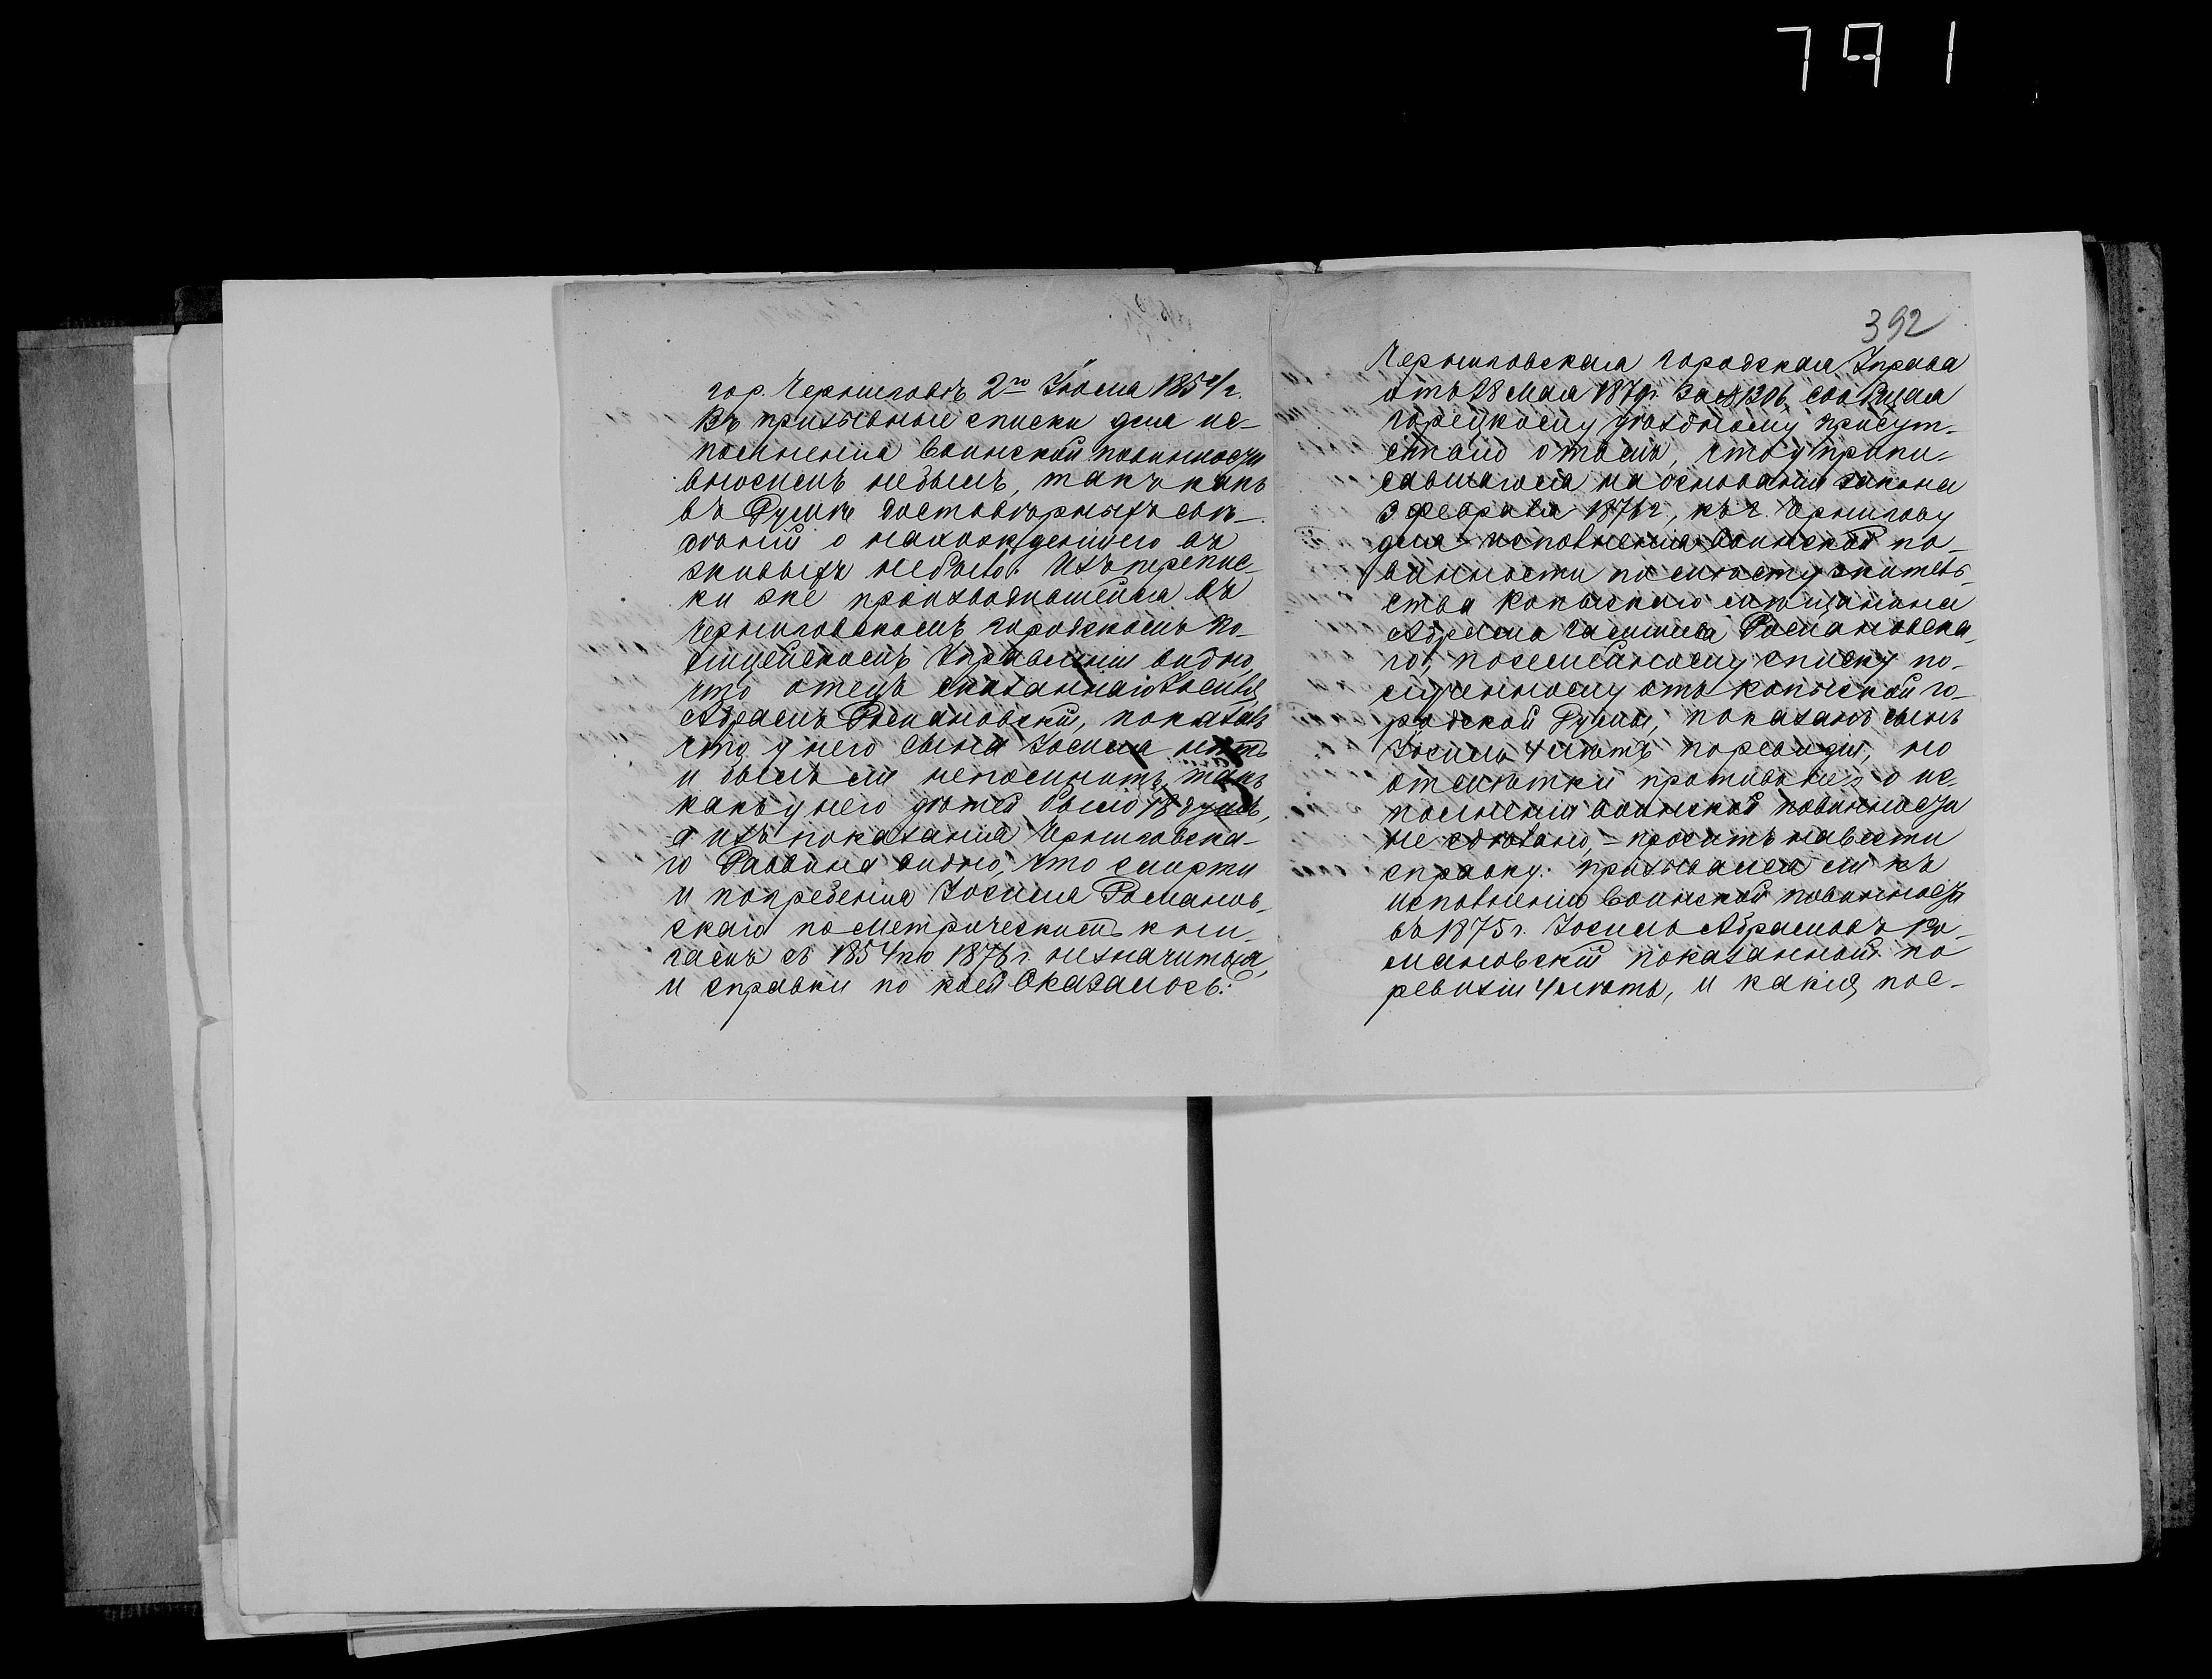 791
гор. Черниговъ 2го Іюля 1854 г.
Въ призывные списки для ис-
полненія воинской повинности
внесенъ небылъ, такъ какъ
въ Думе достовѣрныхъ свѣ-
дѣній о нахожденіи его въ
живыхъ небыло. Изъ перепис-
ки же производившейся въ
Черниговскомъ городскомъ по-
лицейскомъ Управленіи видно,
что отецъ сказаннаго Іосиля,
Абрамъ Романовскій, показалъ
что у него сына Іосиля нѣтъ
и былъ ли непомнитъ, такъ
какъ у него дѣтей было 18 душъ,
а изъ показанія Черниговска-
го Раввина видно, что смерти
и погребенія Іосиля Романов-
скаго по метрическимъ кни-
гамъ съ 1854 по 1876 г. незначится,
и справки по коей Оказалось:
392
Черниговская городская Управа
отъ 28 Мая 1879 г. За № 1306, сообщая
Горецкому уѣздному присут-
ствію о томъ, что у припи-
савшагося на основаніи закона
3 февраля 1876 г, къ г. Чернигову
для исполненія воинской по-
винности по мѣсту житель-
ства Копысскаго мѣщанина
Абрама Романовска-
го, посемейному списку по-
лученному отъ Копысской го-
родской Думы, показанъ сынъ
Іосиль 4 лѣтъ по ревизіи, но
отмѣтки противъ него о ис-
полненіи воинской повинности
не сдѣлано, – проситъ навести
справку: призывался ли къ
исполненію воинской повинности
въ 1875 г. Іосиль Абрамовъ Ро-
мановскій показанный по
ревизіи 4 лѣтъ, и какія, пос-